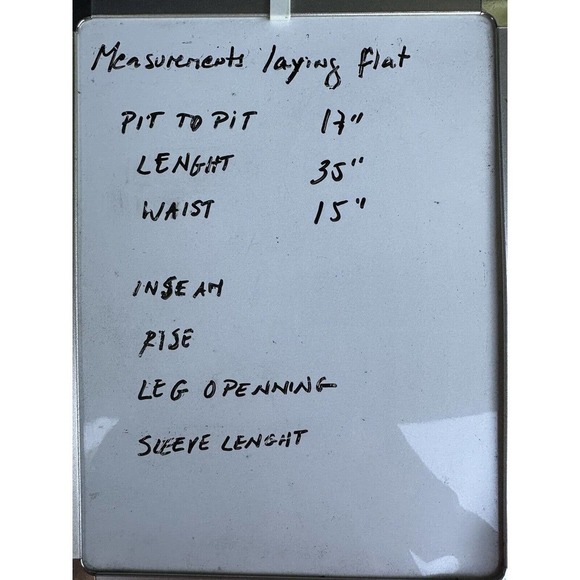 Measurements laying flat
PIT TO PIT 17"
LENGHT 35"
WAIST 15"
INSEAM
RISE
LEG OPENNING
SLEEVE LENGHT